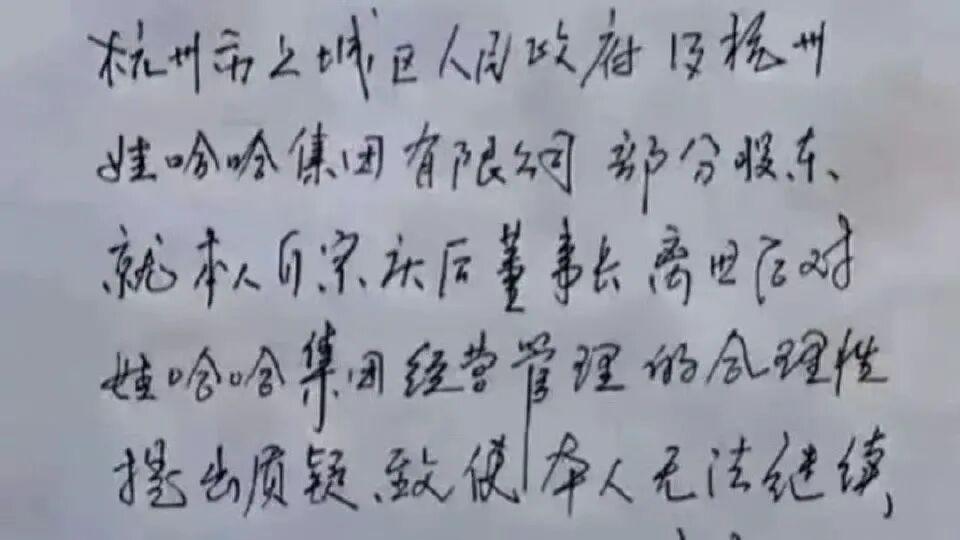 杭州市上城区人民政府及杭州
娃哈哈集团有限公司部分股东、
就本人自宗庆后董事长离世后对
娃哈哈集团经营管理的合理性
提出质疑、致使本人无法继续,